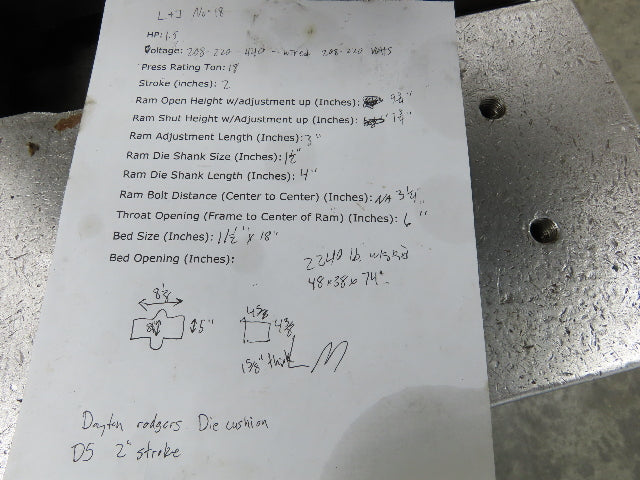 L + J No. 18
HP: 1.5
Voltage: 208-220-440 - wired 208-220 Volts
Press Rating Ton: 18
Stroke (inches): 2
Ram Open Height w/adjustment up (Inches): 9 3/4"
Ram Shut Height w/Adjustment up (Inches): 7 3/4"
Ram Adjustment Length (Inches): 3"
Ram Die Shank Size (Inches): 1 1/2"
Ram Die Shank Length (Inches): 4"
Ram Bolt Distance (Center to Center) (Inches): NA 3 1/4"
Throat Opening (Frame to Center of Ram) (Inches): 6"
Bed Size (Inches): 11 1/2" x 18"
Bed Opening (Inches):
2240 lb w/skid
48x38x74"
8 1/8
5"
4 5/8
4 3/8
1 5/8" thick
M
Dayton rodgers Die cushion
D5 2" stroke